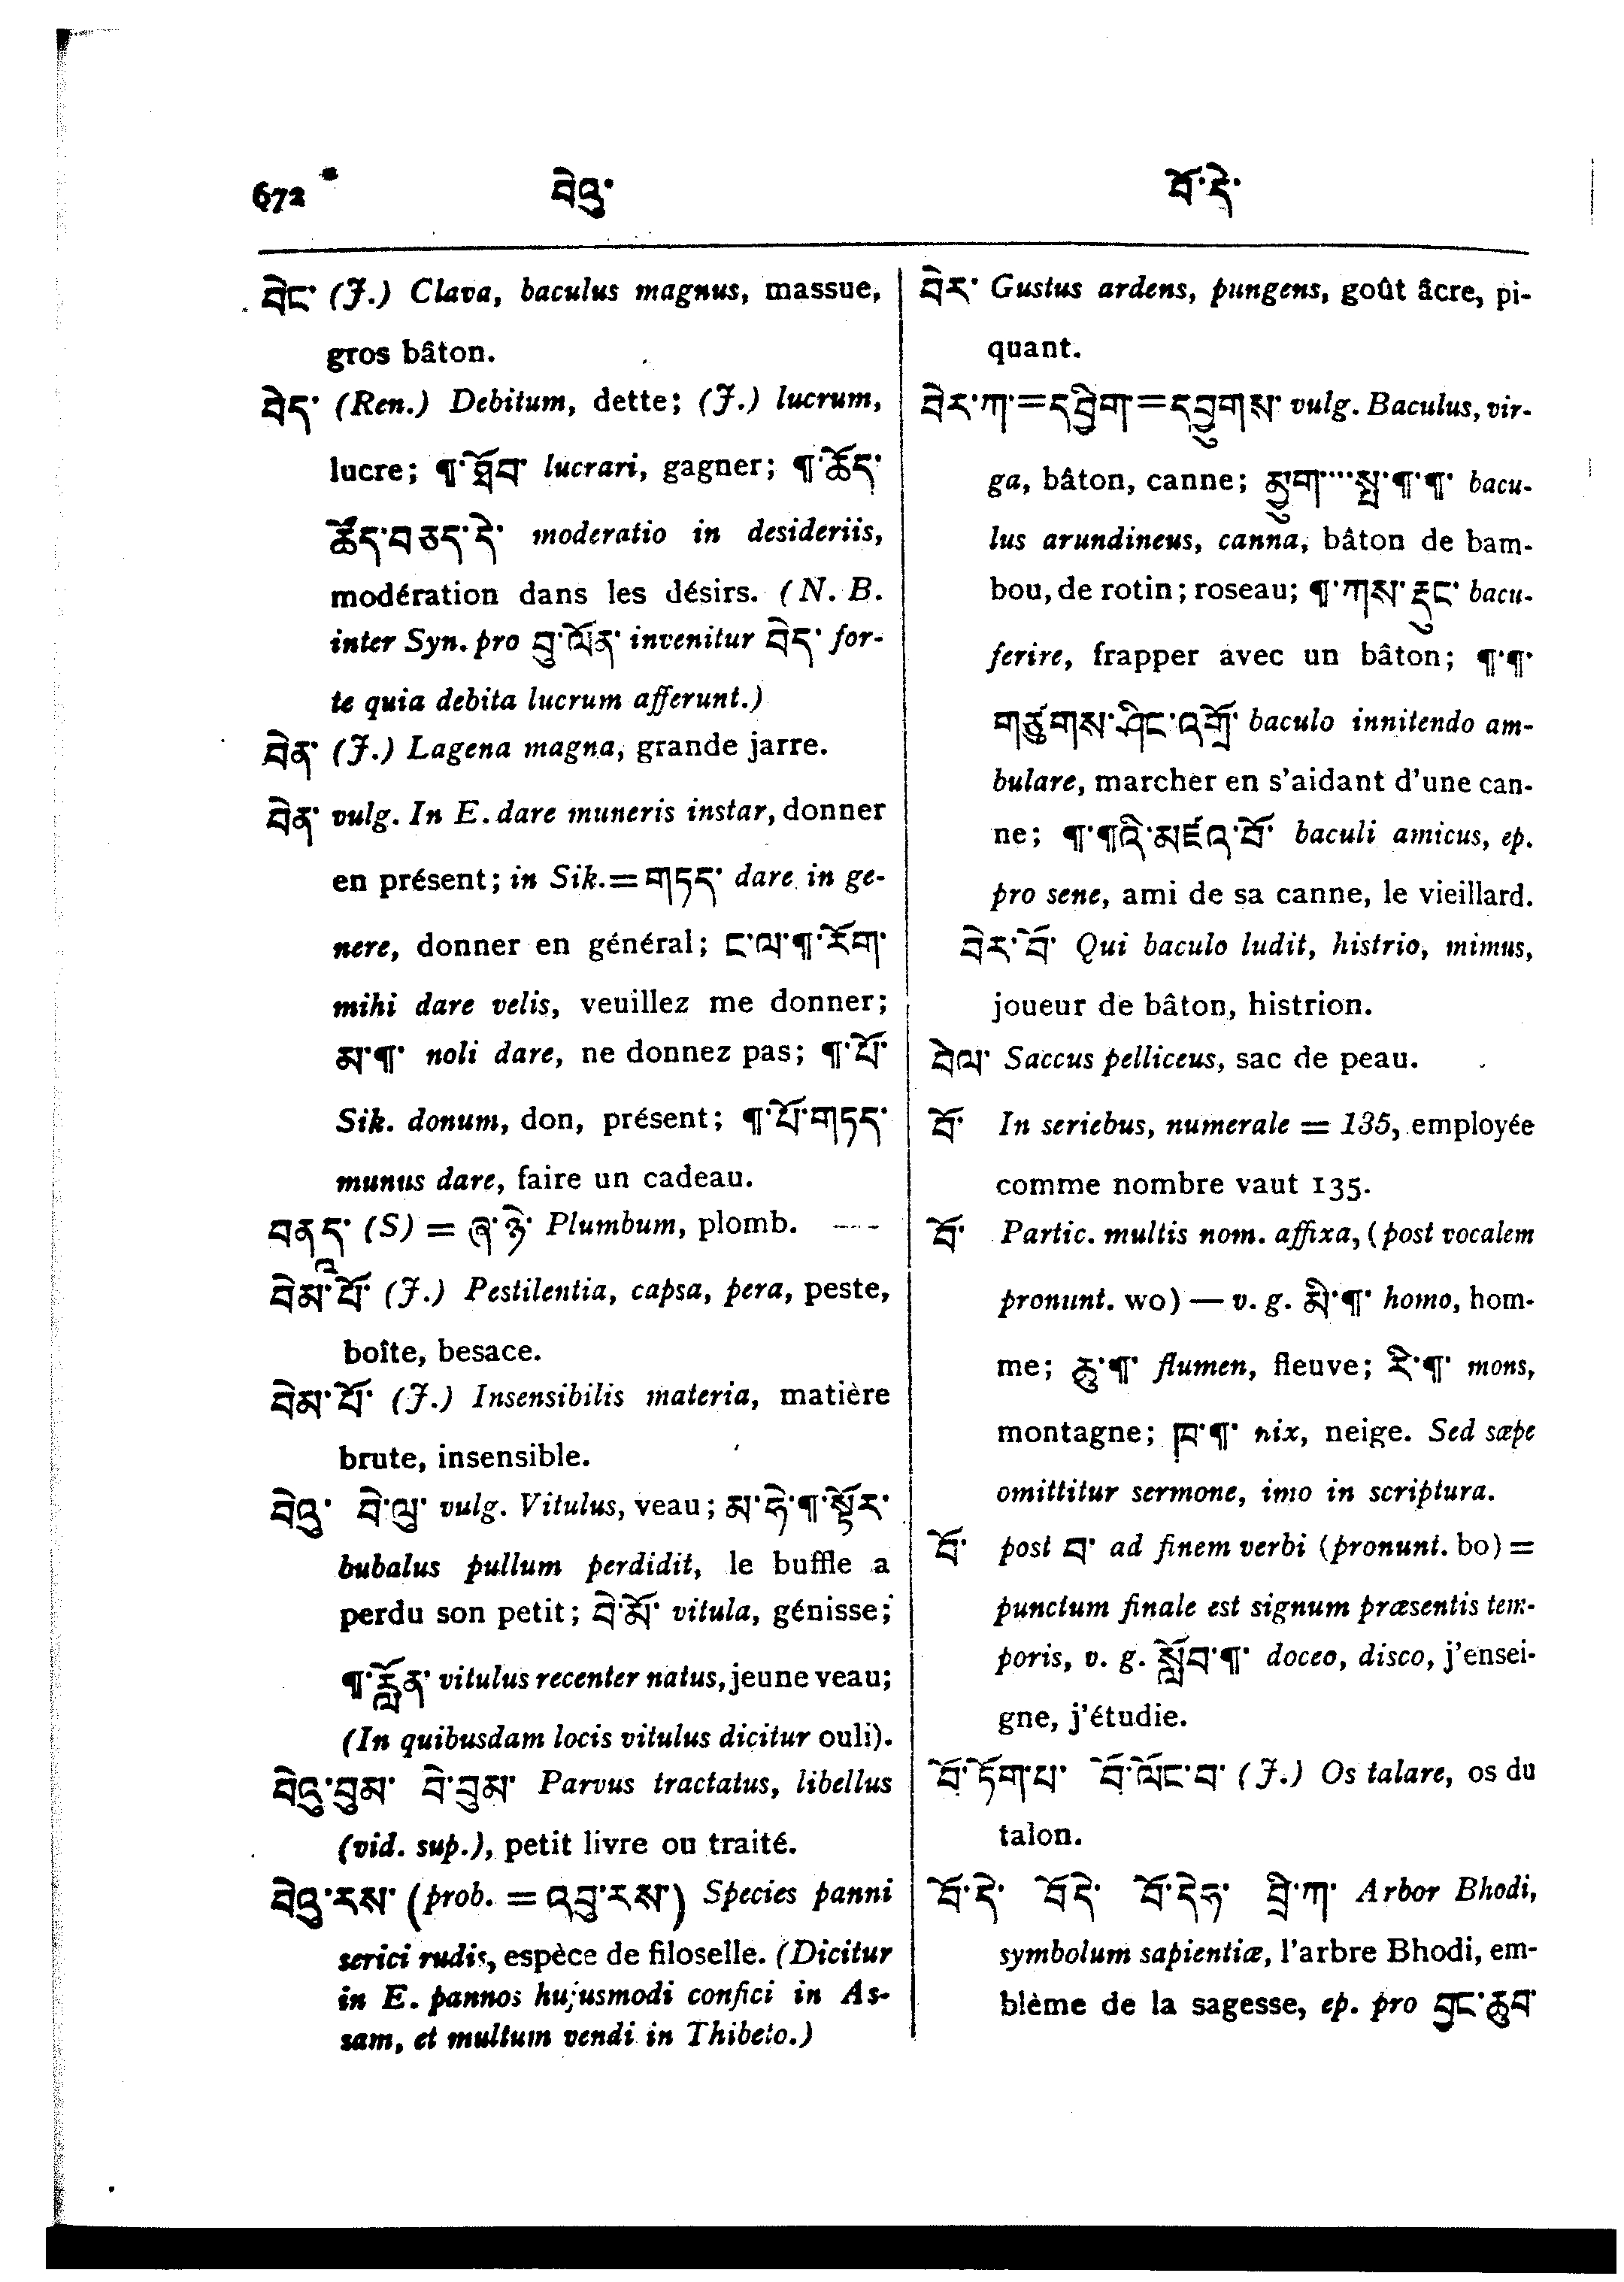 672 བེའུ་ བོ་དེ་
བེང་ (J.) Clava, baculus magnus, massue,
gros bâton.
བེད་ (Ren.) Debitum, dette; (J.) lucrum,
lucre; ¶་ཐོབ་ lucrari, gagner; ¶་ཆོད་
ཚོད་བཅད་དེ་ moderatio in desideriis,
modération dans les désirs. (N. B.
inter Syn. pro བུ་ལོན་ invenitur བེད་ for-
te quia debita lucrum afferunt.)
བེན་ (J.) Lagena magna, grande jarre.
བེན་ vulg. In E. dare muneris instar, donner
en présent; in Sik.=གཏད་ dare in ge-
nere, donner en général; ང་ལ་¶་རོག་
mihi dare velis, veuillez me donner;
མ་¶་ noli dare, ne donnez pas; ¶་པོ་
Sik. donum, don, présent; ¶་པོ་གཏད་
munus dare, faire un cadeau.
(S) = ཞ་ཉེ་ Plumbum, plomb.
བེམ་པོ་ (J.) Pestilentia, capsa, pera, peste,
boîte, besace.
བེམ་པོ་ (J.) Insensibilis materia, matière
brute, insensible.
བེའུ་ བེ་ལུ་ vulg. Vitulus, veau; མ་ཧེ་¶་སྟོར་
bubalus pullum perdidit, le buffle a
perdu son petit; བེ་མོ་ vitula, génisse;
¶་རློན་ vitulus recenter natus, jeune veau;
(In quibusdam locis vitulus dicitur ouli).
བེའུ་བུམ་ བེ་བུམ་ Parvus tractatus, libellus
(vid. sup.), petit livre ou traité.
བེའུ་རས་ (prob. = འབུ་རས་) Species panni
serici rudis, espèce de filoselle. (Dicitur
in E. pannos hujusmodi confici in As-
sam, et multum vendi in Thibeto.)
བེར་ Gustus ardens, pungens, goût âcre, pi-
quant.
བེར་ཀ་=དབྱིག་=དབྱུགས་ vulg. Baculus, vir-
ga, bâton, canne; སྨྱུག་····སྦ་¶་¶་ bacu-
lus arundineus, canna, bâton de bam-
bou, de rotin; roseau; ¶་ཀས་རྡུང་ bacu-
ferire, frapper avec un bâton; ¶་¶་
གཙུགས་ཤིང་འགྲོ་ baculo innitendo am-
bulare, marcher en s'aidant d'une can-
ne; ¶་¶འི་མཛའ་བོ་ baculi amicus, ep.
pro sene, ami de sa canne, le vieillard.
བེར་བོ་ Qui baculo ludit, histrio, mimus,
joueur de bâton, histrion.
བེལ་ Saccus pelliceus, sac de peau.
བོ་ In seriebus, numerale = 135, employée
comme nombre vaut 135.
བོ་ Partic. multis nom. affixa, (post vocalem
pronunt. wo) — v. g. མི་¶་ homo, hom-
me; ཆུ་¶་ flumen, fleuve; རི་¶་ mons,
montagne; ཁ་¶་ nix, neige. Sed sæpe
omittitur sermone, imo in scriptura.
བོ་ post བ་ ad finem verbi (pronunt. bo) =
punctum finale est signum præsentis tem-
poris, v. g. སློབ་¶་ doceo, disco, j'ensei-
gne, j'étudie.
བོ་ཏོག་པ་ བོ་ལོང་བ་ (J.) Os talare, os du
talon.
བོ་དེ་ བོདེ་ བོ་དེཧ་ བྲི་ཀ་ Arbor Bhodi,
symbolum sapientiæ, l'arbre Bhodi, em-
blème de la sagesse, ep. pro བྱང་ཆུབ་